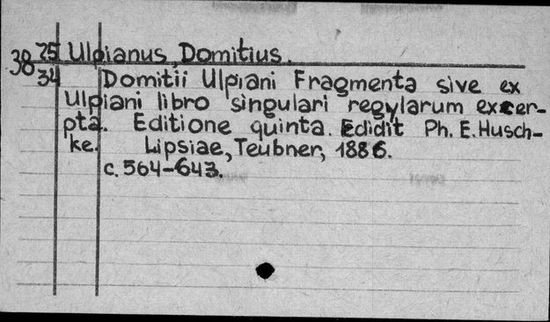 38 25 Ulpianus, Domitius.
34 Domitii Ulpiani Fragmenta sive ex
Ulpiani libro singulari regylarum excer-
pta. Editione quinta. Edidit Ph. E. Husch-
ke. Lipsiae, Teubner, 1886.
c. 564-643.